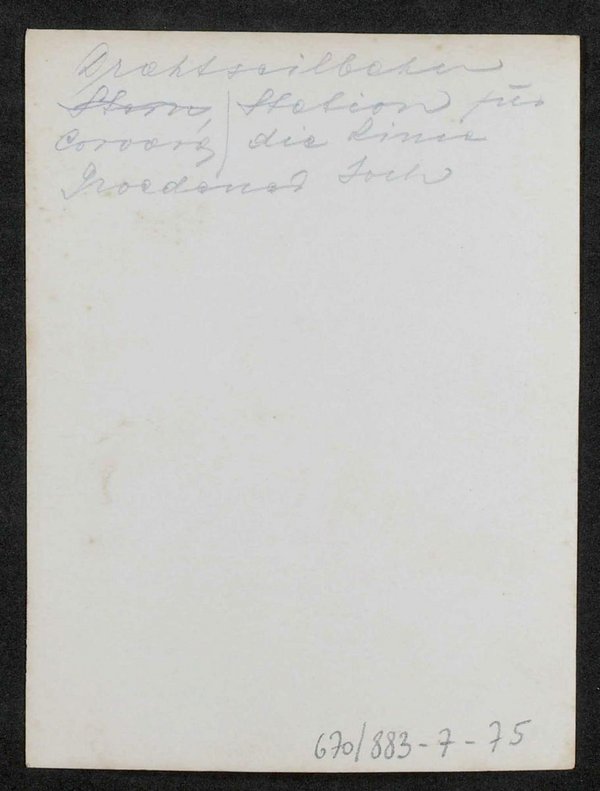 Drahtseilbahn
Stern, Station für
Corvara die Linie
Groedener Joch
670/883-7-75